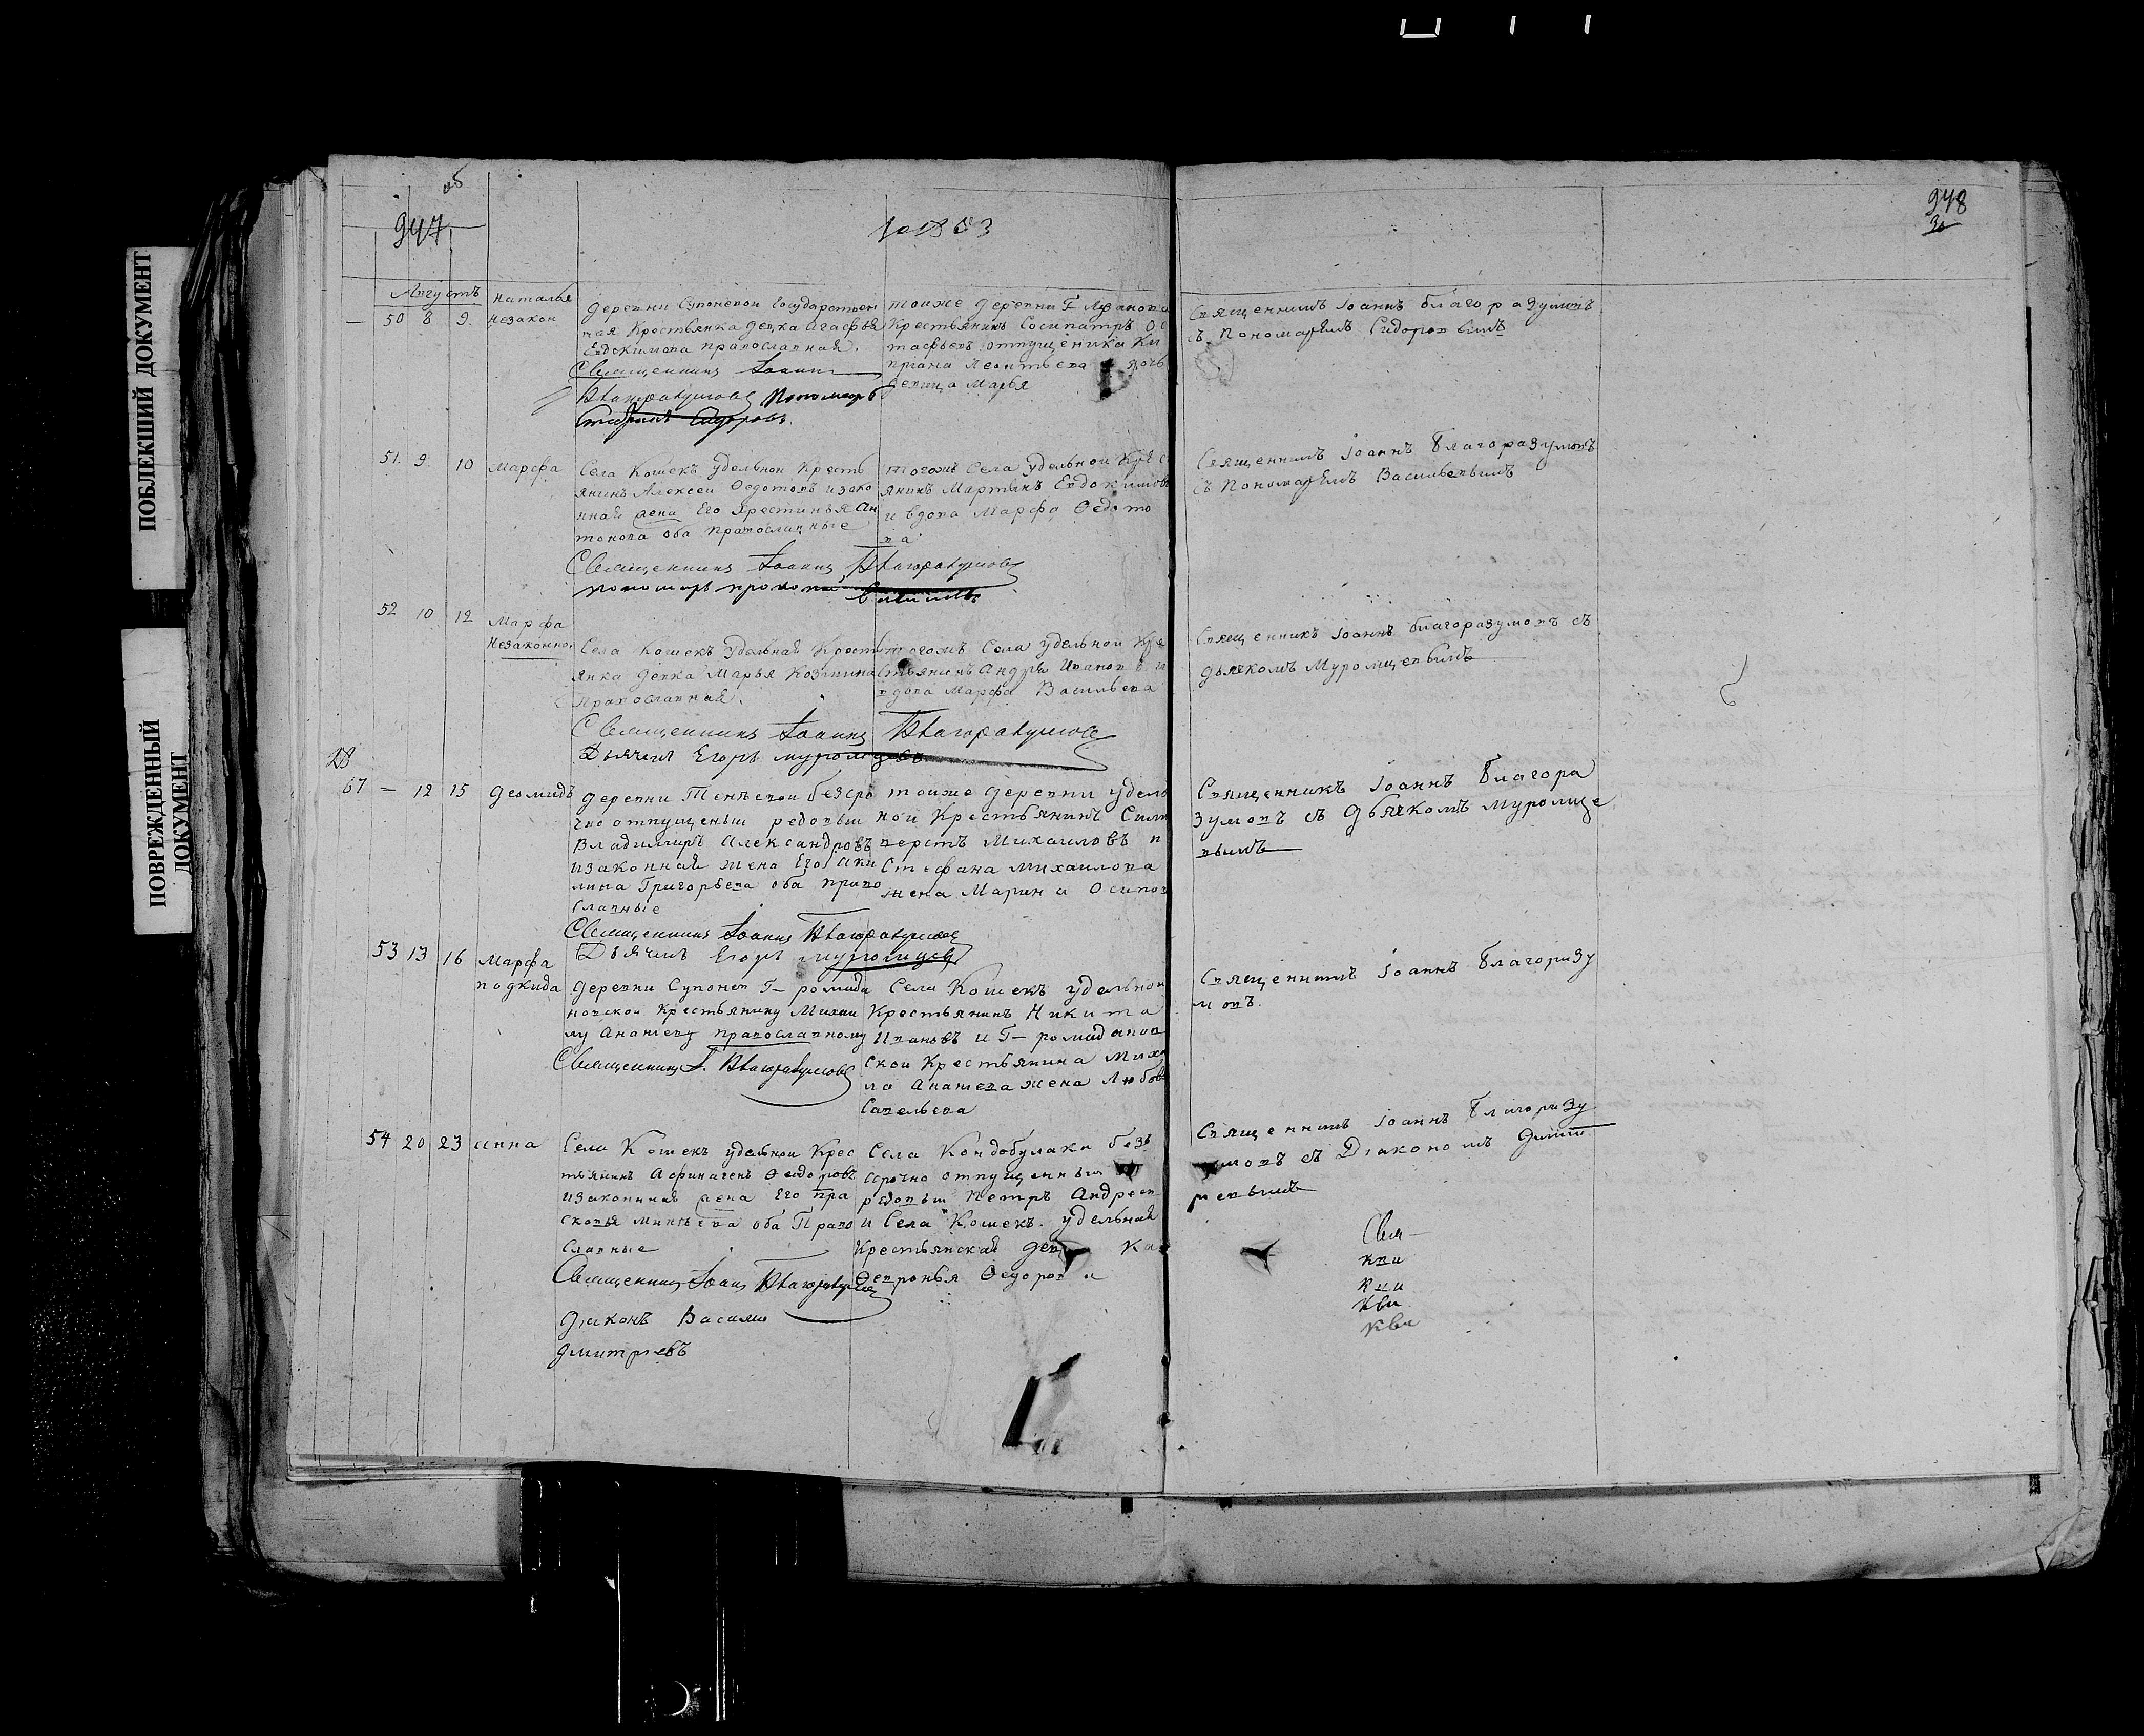 ПОБЛЕКШИЙ ДОКУМЕНТ
ПОВРЕЖДЕННЫЙ
ДОКУМЕНТ
об
947
948
30
Августъ
50 8 9.
Наталья
Незакон
деревни Супоневой Государствен
ная Крестьянка девка Агафья
Евдокимова православная.
Священникъ Іоаннъ
Благоразумовъ Пономарь
Сидоровъ.
тоиже деревни
Крестьянинъ Сосипатръ
отпущеника Ки
пріана Леонтьева дочь
девица Марья
Священникъ Іоаннъ благоразумовъ
съ Пономаремъ Сидоровымъ
51. 9. 10
Марфа
Села Кошекъ удельной Кресть
янинъ Алексеи Федотовъ изако
ннай жена Его Хрестинья Ан
тонова оба православные
Священникъ Іоаннъ Благоразумовъ
пономарь
тогожъ Села удельной Кре
янинъ Мартынъ Евдокимовъ
и вдова Марфа Федото
ва
Священникъ Іоаннъ Благоразумовъ
съ Пономаремъ Васильевымъ
52 10 12
Марфа
Незаконно
Села Кошекъ удельная Крестья
янка девка Марья Козмина
Православная.
Священникъ Іоаннъ Благоразумовъ
Дьячекъ Егоръ Муромцевъ
тогожъ Села удельной Кре
стьянинъ Андреи Иванов и
вдова Марфа Васильева
Священникъ Іоаннъ благоразумовъ съ
дьячкомъ Муромцевымъ
28
67 — 12 15
Деомидъ
деревни Тенеевои безсро
чно отпущеныи редовыи
Владимиръ Александровъ
изаконнай жена Его Аку
лина Григорьева оба право
славные
Священникъ Іоаннъ Благоразумовъ
Дьячекъ Егоръ Муромцевъ
тоиже деревни удель
ной Крестьянинъ Сили
верстъ Михаиловъ и
Стефана Михаилова
жена Марина Осипов
Священникъ Іоаннъ Благора
зумовъ съ дьячкомъ Муромце
вымъ
53 13 16
Марфа
подкида
деревни Супонев Г— ромида
новскои Крестьянину Михаи
лу Ананьеву православному
Священникъ І. Благоразумовъ
Села Кошекъ удельной
Крестьянинъ Никита
Ивановъ и Г— ромиданов
скои Крестьянина Миха
ла Ананьева жена Любовь
Савельева
Священникъ Іоаннъ Благоразу
мовъ.
54 20 23
Анна
Села Кошекъ удельной Крес
тьянинъ Афиногенъ Феодоровъ
изаконная жена Его Пра
сковья Минеева оба Право
славные
Священникъ Іоаннъ Благоразумовъ
Діаконъ Василій
Дмитріевъ
Села Кондобулака безъ
срочно отпущенныи
редовыи Петръ Андреев
и Села Кошекъ удельная
Крестьянская дев
Февронья Федорова
Священникъ Іоаннъ Благоразу
мовъ съ Діакономъ Дмит
ревымъ
Свя—